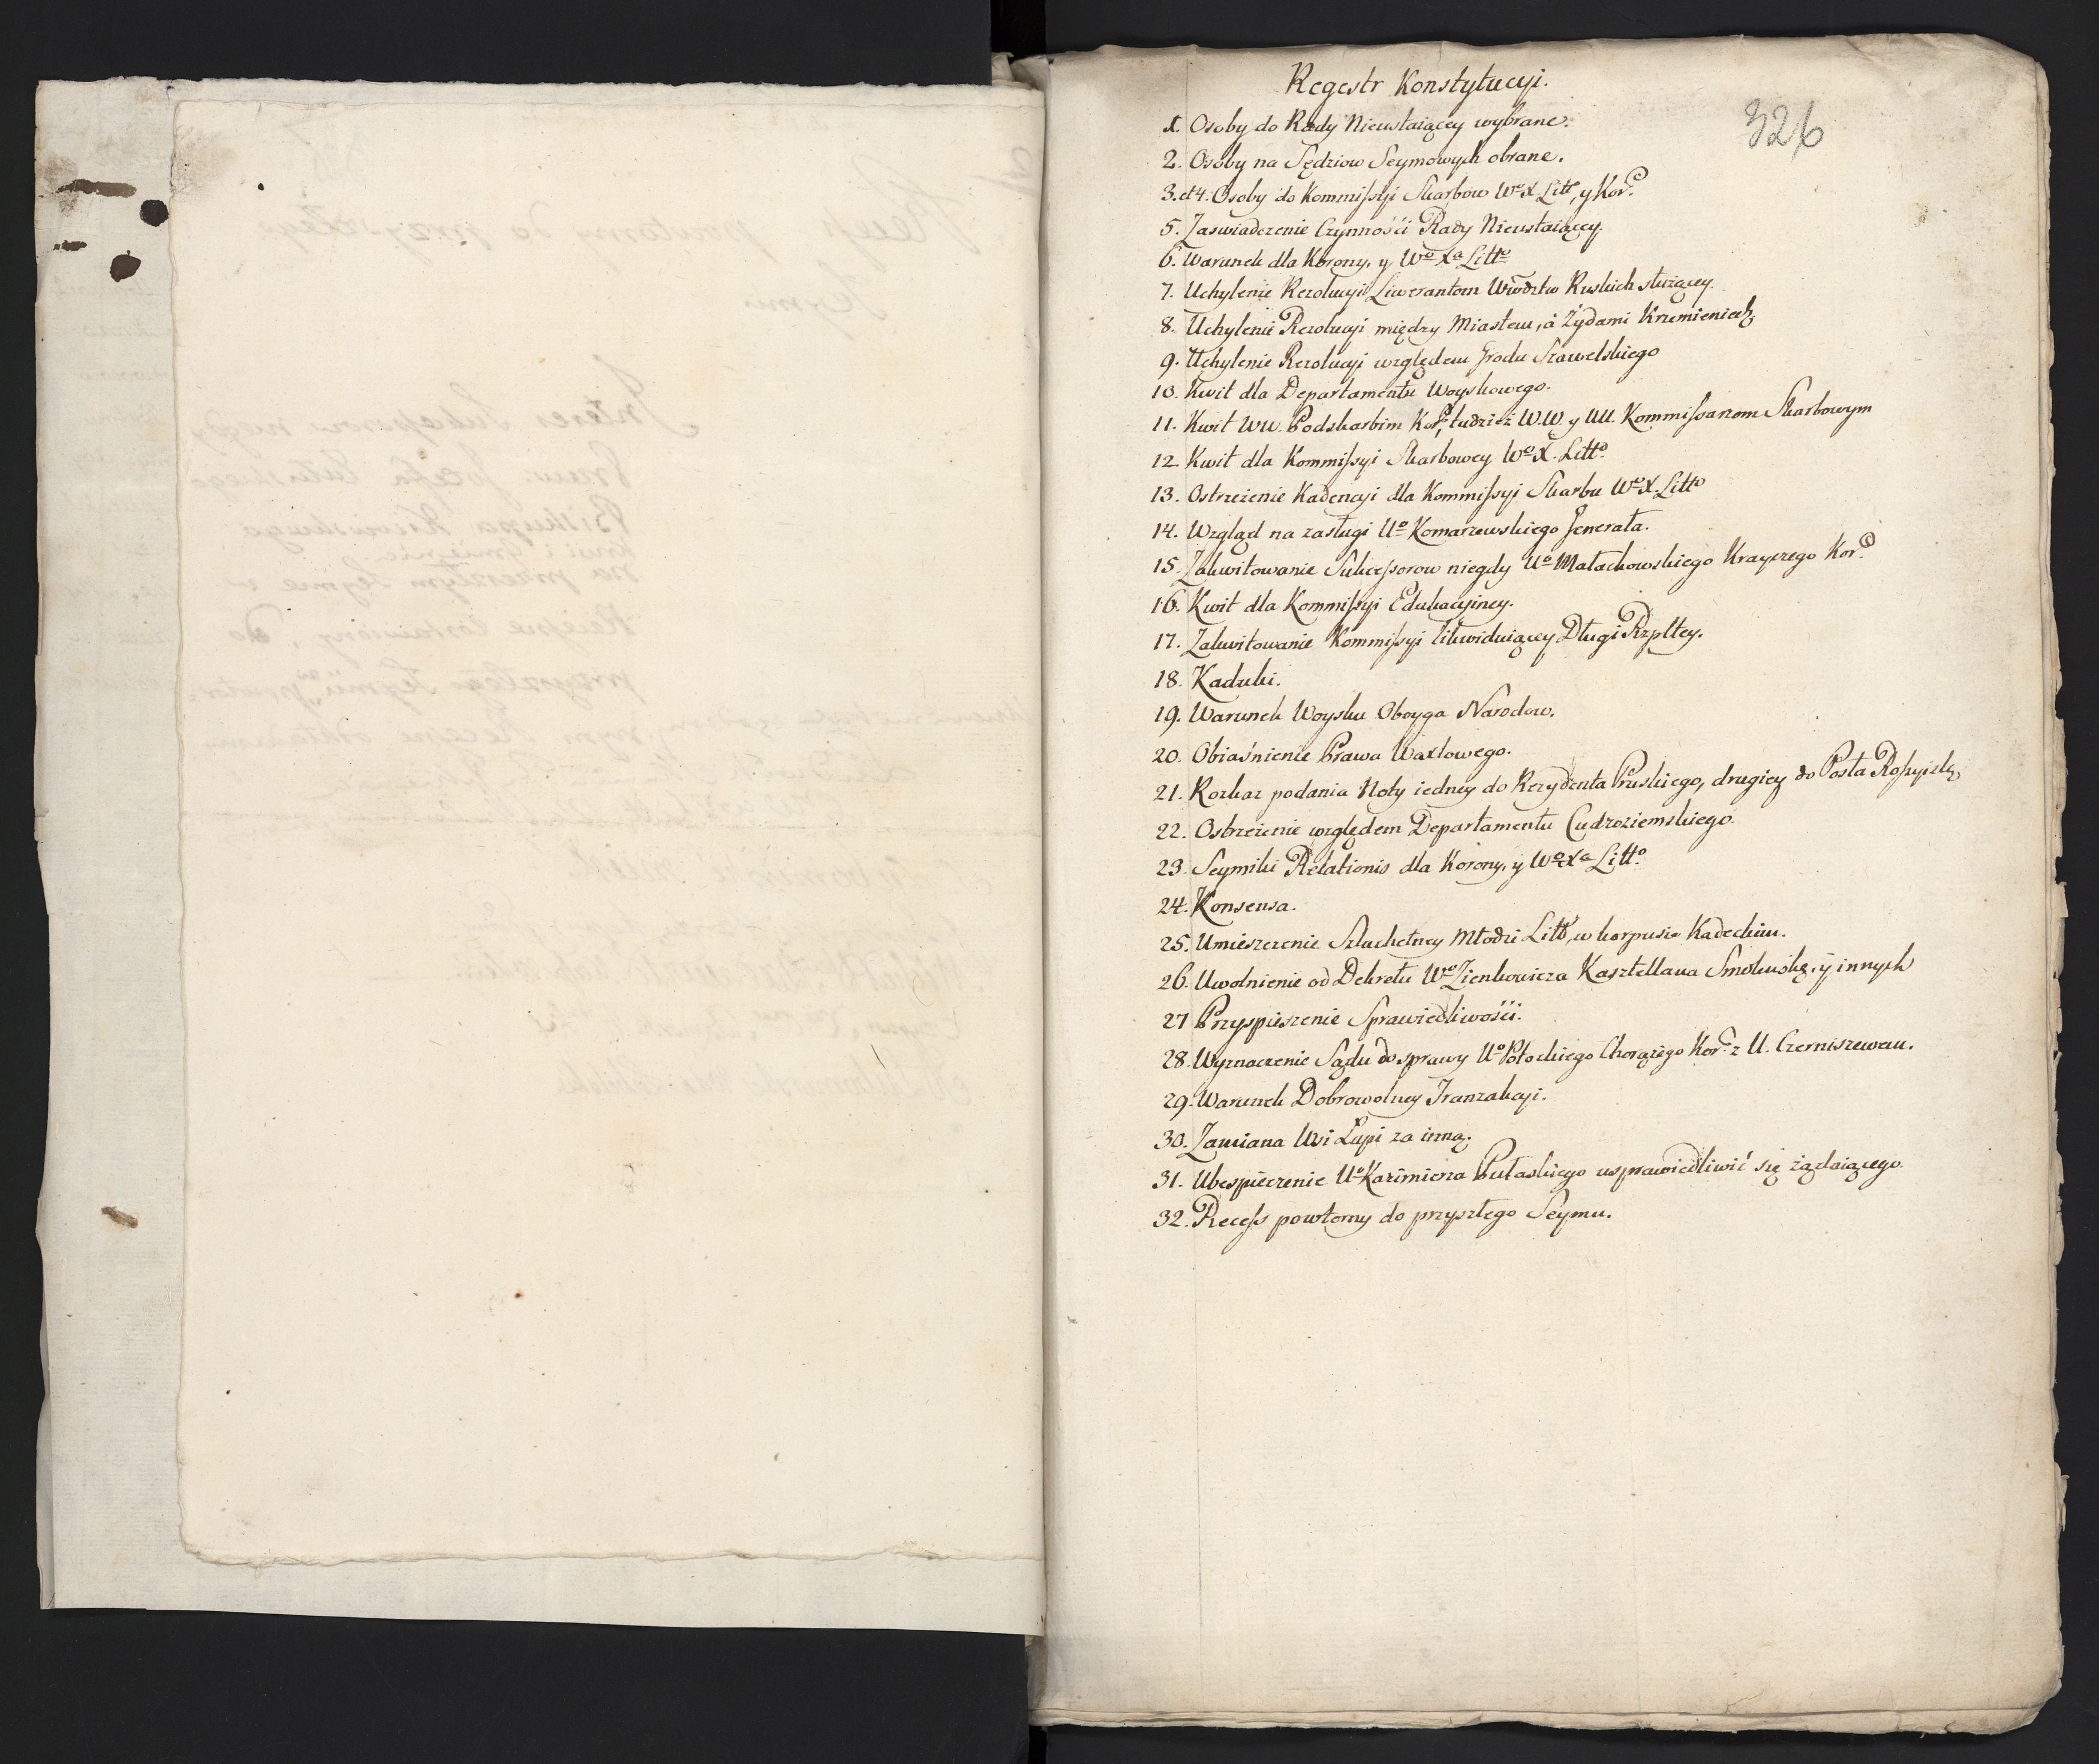 Regestr Konstytucyi.
326
1. Osoby do Rady Nieustaiącey wybrane.
2. Osoby na Sędziow Seymowych obrane.
3. et 4. Osoby do Kommissyi Skarbow Wo X Litto, y Kor.
5. Zaswiadczenie Czynności Rady Nieustaiącey.
6. Warunek dla Korony, y Wo Xa Litto
7. Uchylenie Rezolucyi Liwerantom Wwodztw Ruskich służącey.
8. Uchylenie Rezolucyi między Miastem, á Żydami Krzemienieck.
9. Uchylenie Rezolucyi względem Grodu Szawelskiego
10. Kwit dla Departamentu Woyskowego.
11. Kwit WW. Podskarbim Kor, tudzież W.W. y UU. Kommissarzom Skarbowym
12. Kwit dla Kommissyi Skarbowey Wo X. Litto.
13. Ostrzeżenie Kadencyi dla Kommissyi Skarbu Wo X. Litto
14. Wzgląd na zasługi Uo Komarzewskiego Jenerała.
15. Zakwitowanie Sukcessorow niegdy Uo Małachowskiego Krayczego Kor.
16. Kwit dla Kommissyi Edukacyiney.
17. Zakwitowanie Kommissyi likwiduiącey Długi Rzpltey.
18. Kaduki.
19. Warunek Woysku Oboyga Narodow.
20. Obiaśnienie Prawa Waxlowego.
21. Rozkaz podania Noty iedney do Rezydenta Pruskiego, drugiey do Posła Rossyisk.
22. Ostrzeżenie względem Departamentu Cudzoziemskiego.
23. Seymiki Relationis dla Korony, y Wo Xa Litto.
24. Konsensa.
25. Umieszczenie Szlachetney Młodzi Litt, w korpusie Kadeckim.
26. Uwolnienie od Dekretu Wo Zienkowicza Kasztellana Smoleńskg, y innych
27 Przyspieszenie Sprawiedliwości.
28. Wyznaczenie Sądu do sprawy Uo Potockiego Chorążego Kor. z U. Czerniszewem.
29. Warunek Dobrowolney Tranzakcyi.
30. Zamiana Wsi Łupi za inną.
31. Ubespieczenie Uo Kazimierza Pułaskiego usprawiedliwić się żądaiącego.
32. Recess powtorny do przyszłego Seymu.